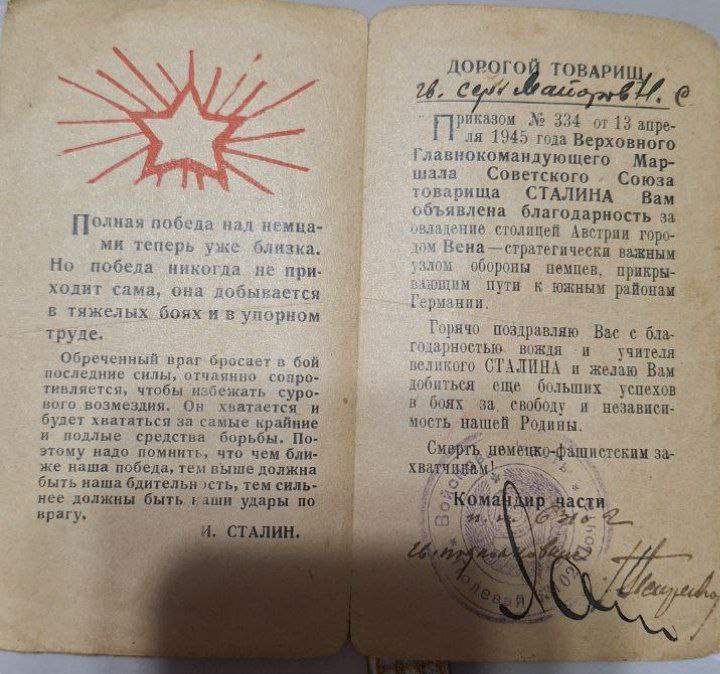 Полная победа над немца-
ми теперь уже близка.
Но победа никогда не при-
ходит сама, она добывается
в тяжелых боях и в упорном
труде.
Обреченный враг бросает в бой
последние силы, отчаянно сопро-
тивляется, чтобы избежать суро-
вого возмездия. Он хватается и
будет хвататься за самые крайние
и подлые средства борьбы. По-
этому надо помнить, что чем бли-
же наша победа, тем выше должна
быть наша бдительность, тем силь-
нее должны быть наши удары по
врагу.
И. СТАЛИН.
ДОРОГОЙ ТОВАРИЩ
гв. серж Майоров Н. С
Приказом № 334 от 13 апре-
ля 1945 года Верховного
Главнокомандующего Мар-
шала Советского Союза
товарища СТАЛИНА Вам
объявлена благодарность за
овладение столицей Австрии горо-
дом Вена—стратегически важным
узлом обороны немцев, прикры-
вающим пути к южным районам
Германии.
Горячо поздравляю Вас с бла-
годарностью вождя и учителя
великого СТАЛИНА и желаю Вам
добиться еще больших успехов
в боях за свободу и независи-
мость нашей Родины.
Смерть немецко-фашистским за-
хватчикам!
Командир части
п. п.
гв. подполковник
Полевая Почта